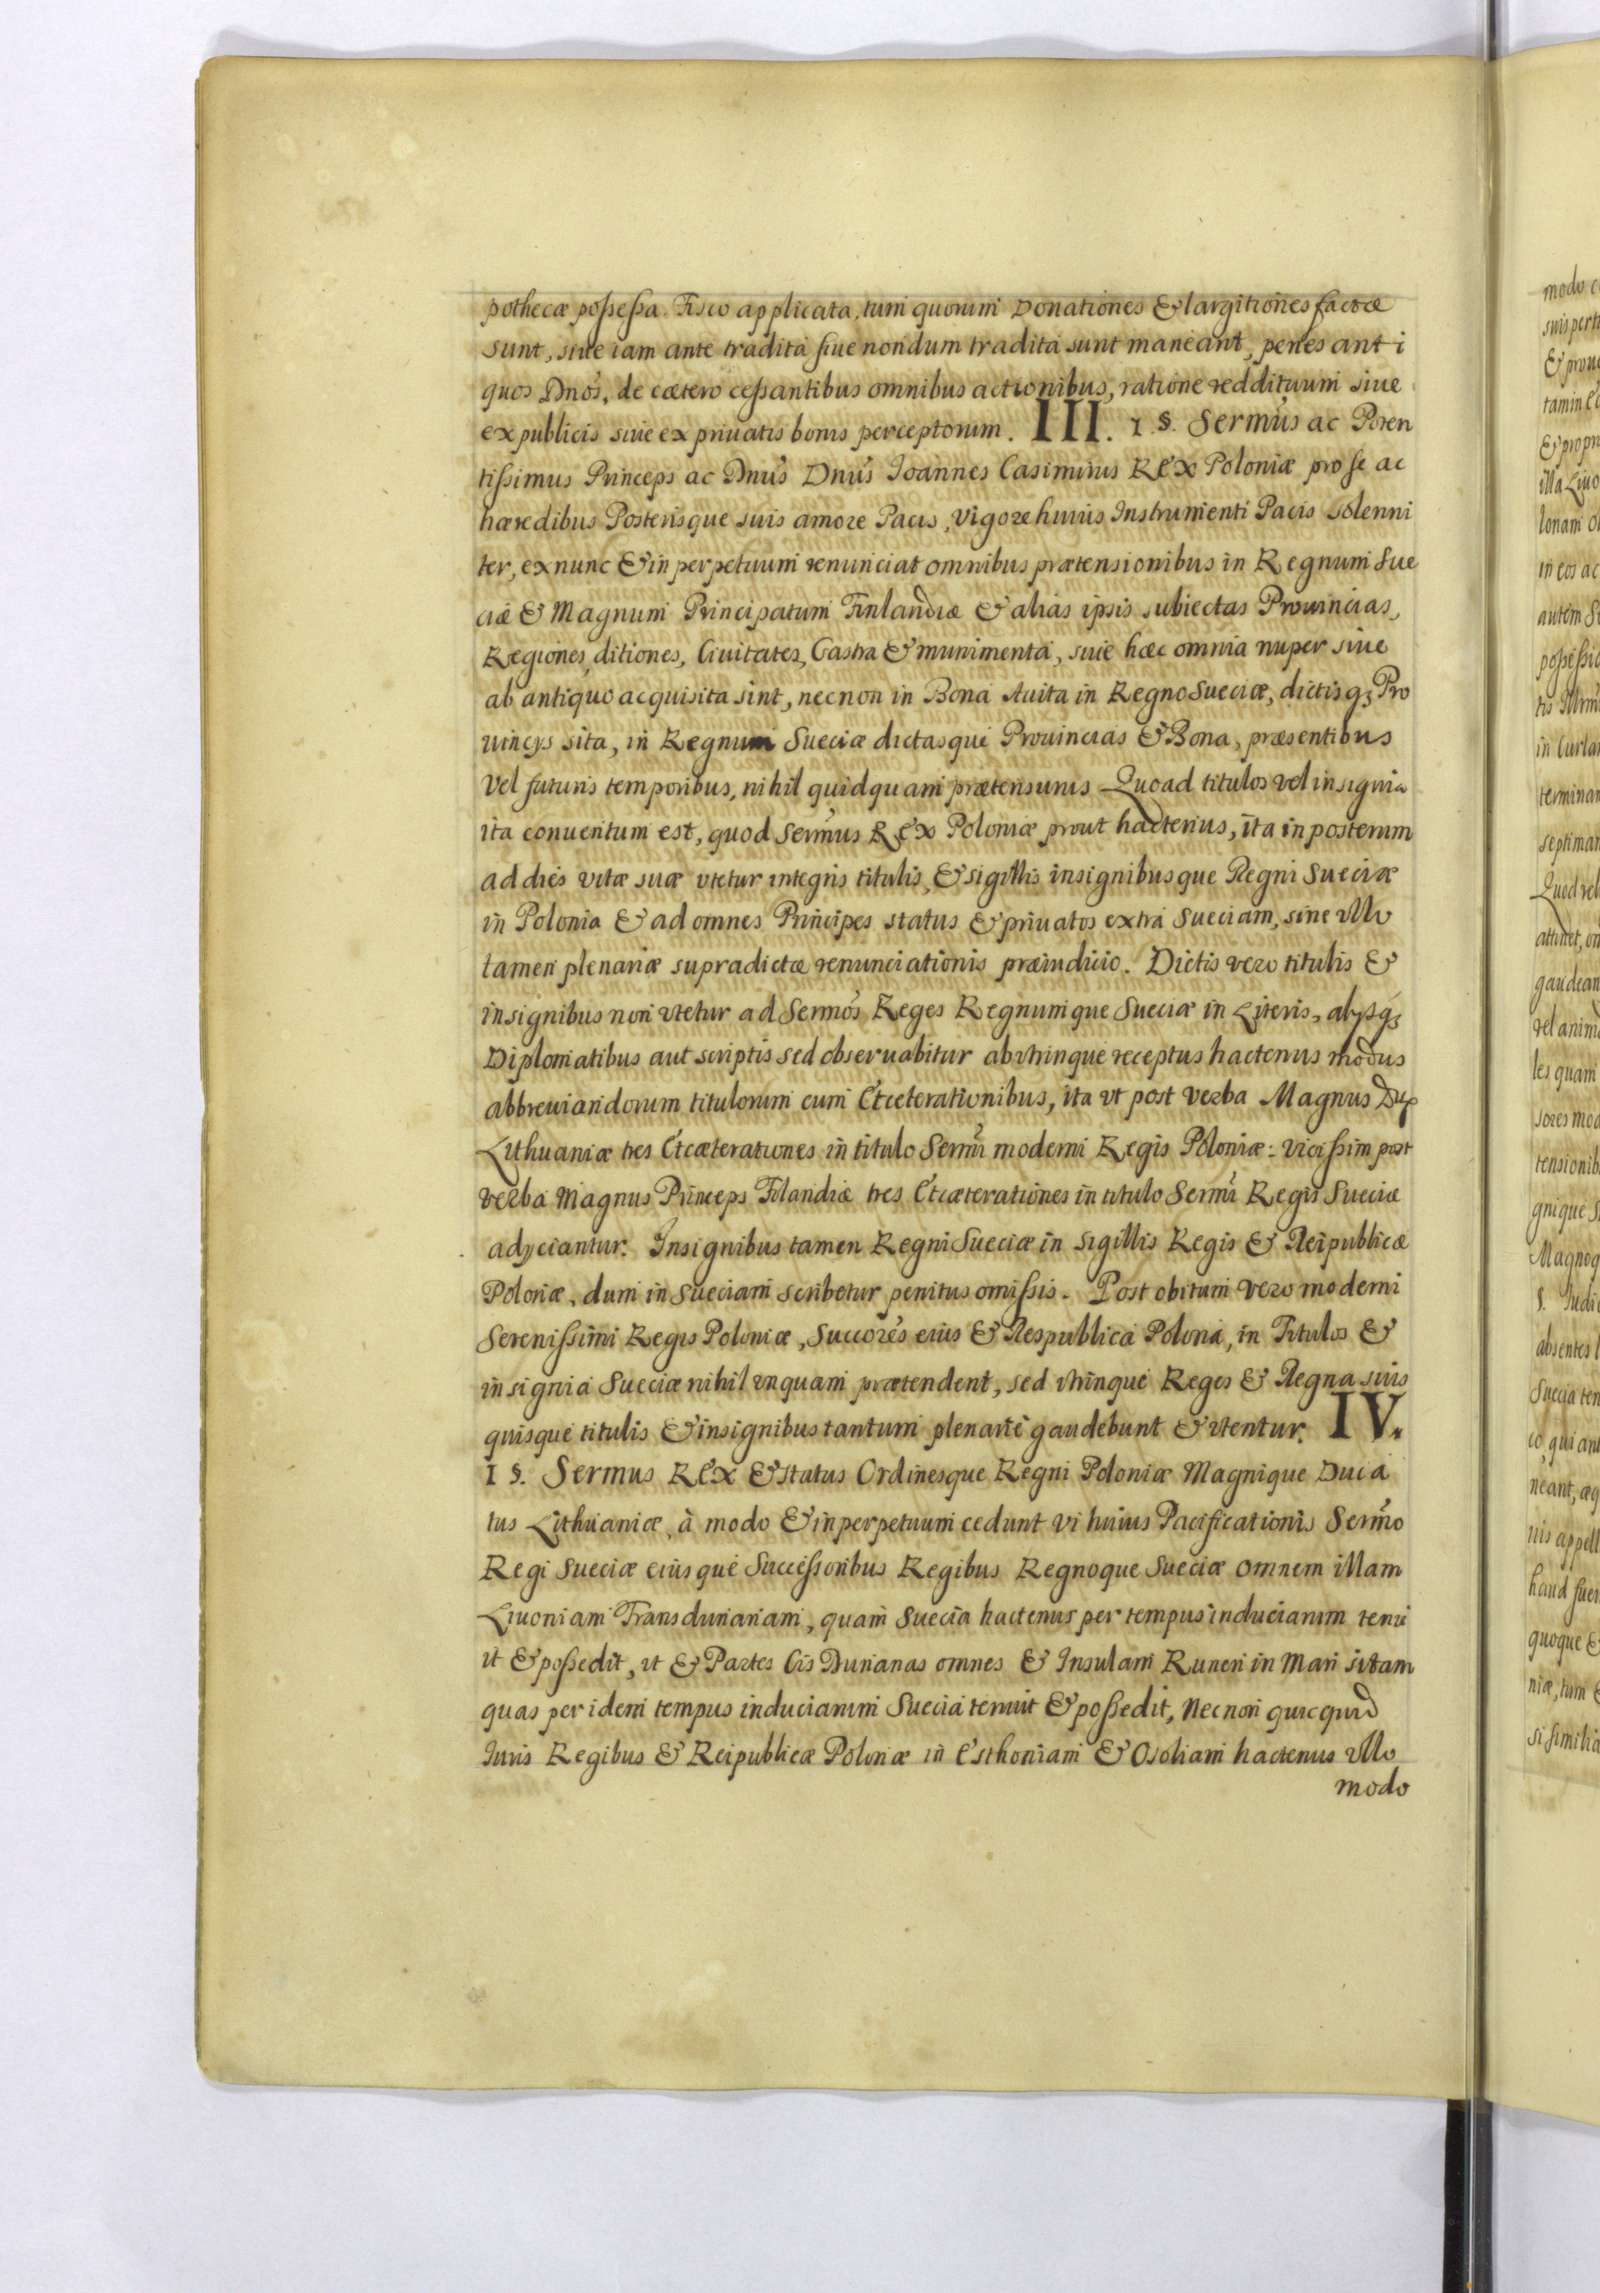 pothecæ possessa. Fisco applicata, tum quorum Donationes & largitiones factæ
sunt, siue iam ante tradita siue nondum tradita sunt maneant, penes anti
quos Dnos, de cætero cessantibus omnibus actionibus, ratione reddituum siue
ex publicis siue ex priuatis bonis perceptorum. III. 1 §. Sermus ac Poten
tissimus Princeps ac Dnus Dnus Ioannes Casimirus REX Poloniæ pro se ac
hæredibus Posterisque suis amore Pacis, vigore huius Instrumenti Pacis solenni
ter, ex nunc & in perpetuum renunciat omnibus prætensionibus in Regnum Sue
ciæ & Magnum Principatum Finlandiæ & alias ipsis subiectas Prouincias,
Regiones, ditiones, Ciuitates, Castra & munimenta, siue hæc omnia nuper siue
ab antiquo acquisita sint, necnon in Bona Auita in Regno Sueciæ, dictisq; Pro
uincijs sita, in Regnum Sueciæ dictasque Prouincias & Bona, præsentibus
vel futuris temporibus, nihil quidquam prætensurus Quoad titulos vel insignia
ita conuentum est, quod Sermus REX Poloniæ prout hactenus, ita inposterum
ad dies vitæ suæ vtetur integris titulis, & sigillis insignibusque Regni Sueciæ
in Polonia & ad omnes Principes status & priuatos extra Sueciam, sine vllo
tamen plenariæ supradictæ renunciationis præiudicio. Dictis vero titulis &
insignibus non vtetur ad Sermos Reges Regnumque Sueciæ in Literis, alysq;
Diplomatibus aut scriptis sed obseruabitur abvtrinque receptus hactenus modus
abbreuiandorum titulorum cum Etceterationibus, ita vt post verba Magnus Dux
Lithuaniæ tres Etcæterationes in titulo Sermi moderni Regis Poloniæ: vicissim post
verba Magnus Princeps Filandiæ tres Etcæterationes in titulo Sermi Regis Sueciæ
adyciantur. Insignibus tamen Regni Sueciæ in sigillis Regis & Reipublicæ
Poloniæ, dum in Sueciam scribetur penitus omissis. Post obitum vero moderni
Serenissimi Regis Poloniæ, Succores eius & Respublica Polona, in Titulos &
insignia Sueciæ nihil vnquam prætendent, sed vtrinque Reges & Regna suis
quisque titulis & insignibus tantum plenarie gaudebunt & vtentur. IV.
1 §. Sermus REX & status Ordinesque Regni Poloniæ Magnique Duca
tus Lithuaniæ, à modo & inperpetuum cedunt vi huius Pacificationis Sermo
Regi Sueciæ eiusque Successoribus Regibus Regnoque Sueciæ omnem illam
Liuoniam Transdunanam, quam Suecia hactenus per tempus induciarum tenu
it & possedit, vt & Partes Cis Dunanas omnes & Insulam Runen in Mari sitam
quas per idem tempus induciarum Suecia tenuit & possedit, Necnon quicquid
Iuris Regibus & Reipublicæ Poloniæ in Esthoniam & Osoliam hactenus vllo
modo